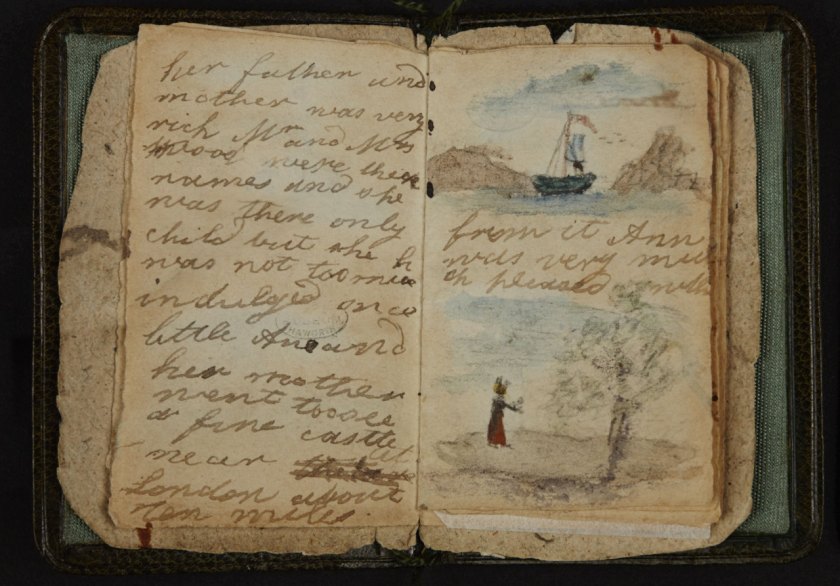 her father and
mother was very
rich Mr and Mrs
Wood were there
names and she
was there only
child but she
was not too muc
indulged once
little Ane and
her mother
went too see
a fine castle
near
London about
Ten miles.
from it Ann
was very mu
ch pleased with
HAWORTH